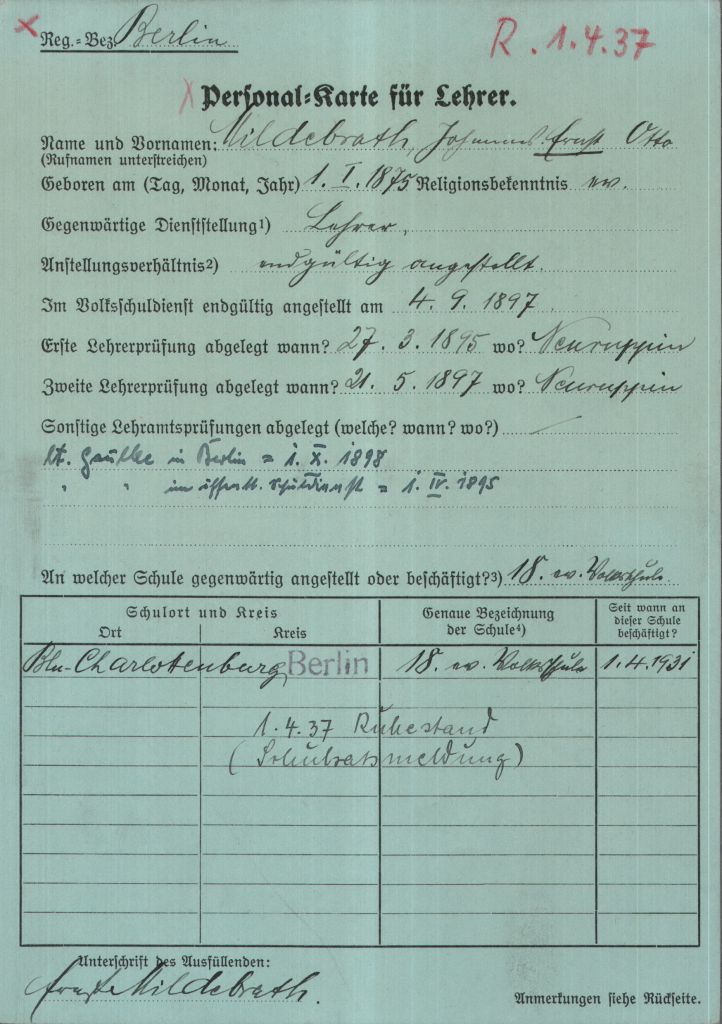 Reg.=Bez. Berlin
R. 1.4.37
Personal=Karte für Lehrer.
Name und Vornamen: Mildebrath, Johannes Ernst Otto
(Rufnamen unterstreichen)
Geboren am (Tag, Monat, Jahr) 1. I. 1875 Religionsbekenntnis ev.
Gegenwärtige Dienststellung1) Lehrer,
Anstellungsverhältnis2) endgültig angestellt.
Im Volksschuldienst endgültig angestellt am 4. 9. 1897.
Erste Lehrerprüfung abgelegt wann? 27. 3. 1895 wo? Neuruppin
Zweite Lehrerprüfung abgelegt wann? 21. 5. 1897 wo? Neuruppin
Sonstige Lehramtsprüfungen abgelegt (welche? wann? wo?)
lt. in Berlin = 1. X. 1898
" " im öffentl. Schuldienst = 1. IV. 1895
An welcher Schule gegenwärtig angestellt oder beschäftigt?3) 18. ev. Volksschule
Schulort und Kreis
Ort
Kreis
Genaue Bezeichnung
der Schule4)
Seit wann an
dieser Schule
beschäftigt?
Bln-Charlotenburg Berlin 18. ev. Volksschule 1.4.1931
1.4.37 Ruhestand
(Schulratsmeldung)
Unterschrift des Ausfüllenden:
Ernst Mildebrath.
Anmerkungen siehe Rückseite.